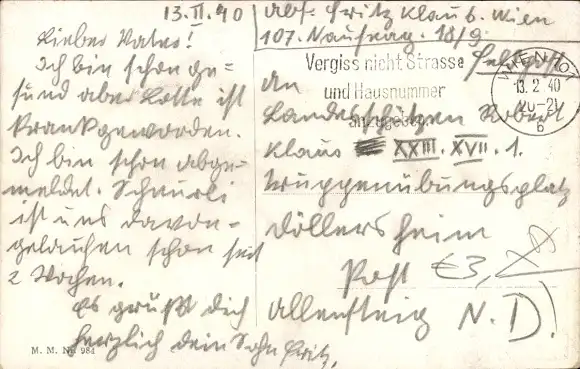 13.II.40
Lieber Vater!
Ich bin schon ge-
sund aber Lotte ist
krank geworden.
Ich bin schon abge-
meldet. Schnurli
ist uns davon-
gelaufen schon seit
2 Wochen.
Es grüßt dich
herzlich dein Sohn Fritz.
M. M. Nr. 984
Abs. Fritz Klaus b. Wien
107. 18/9.
Vergiss nicht Strasse
und Hausnummer
anzugeben
WIEN 107
13. 2. 40
20-21
b
Feldpost
An
Landesschützen Robert
Klaus XXIII. XVII. 1.
Truppenübungsplatz
Döllersheim
Post
Allentsteig N. D.